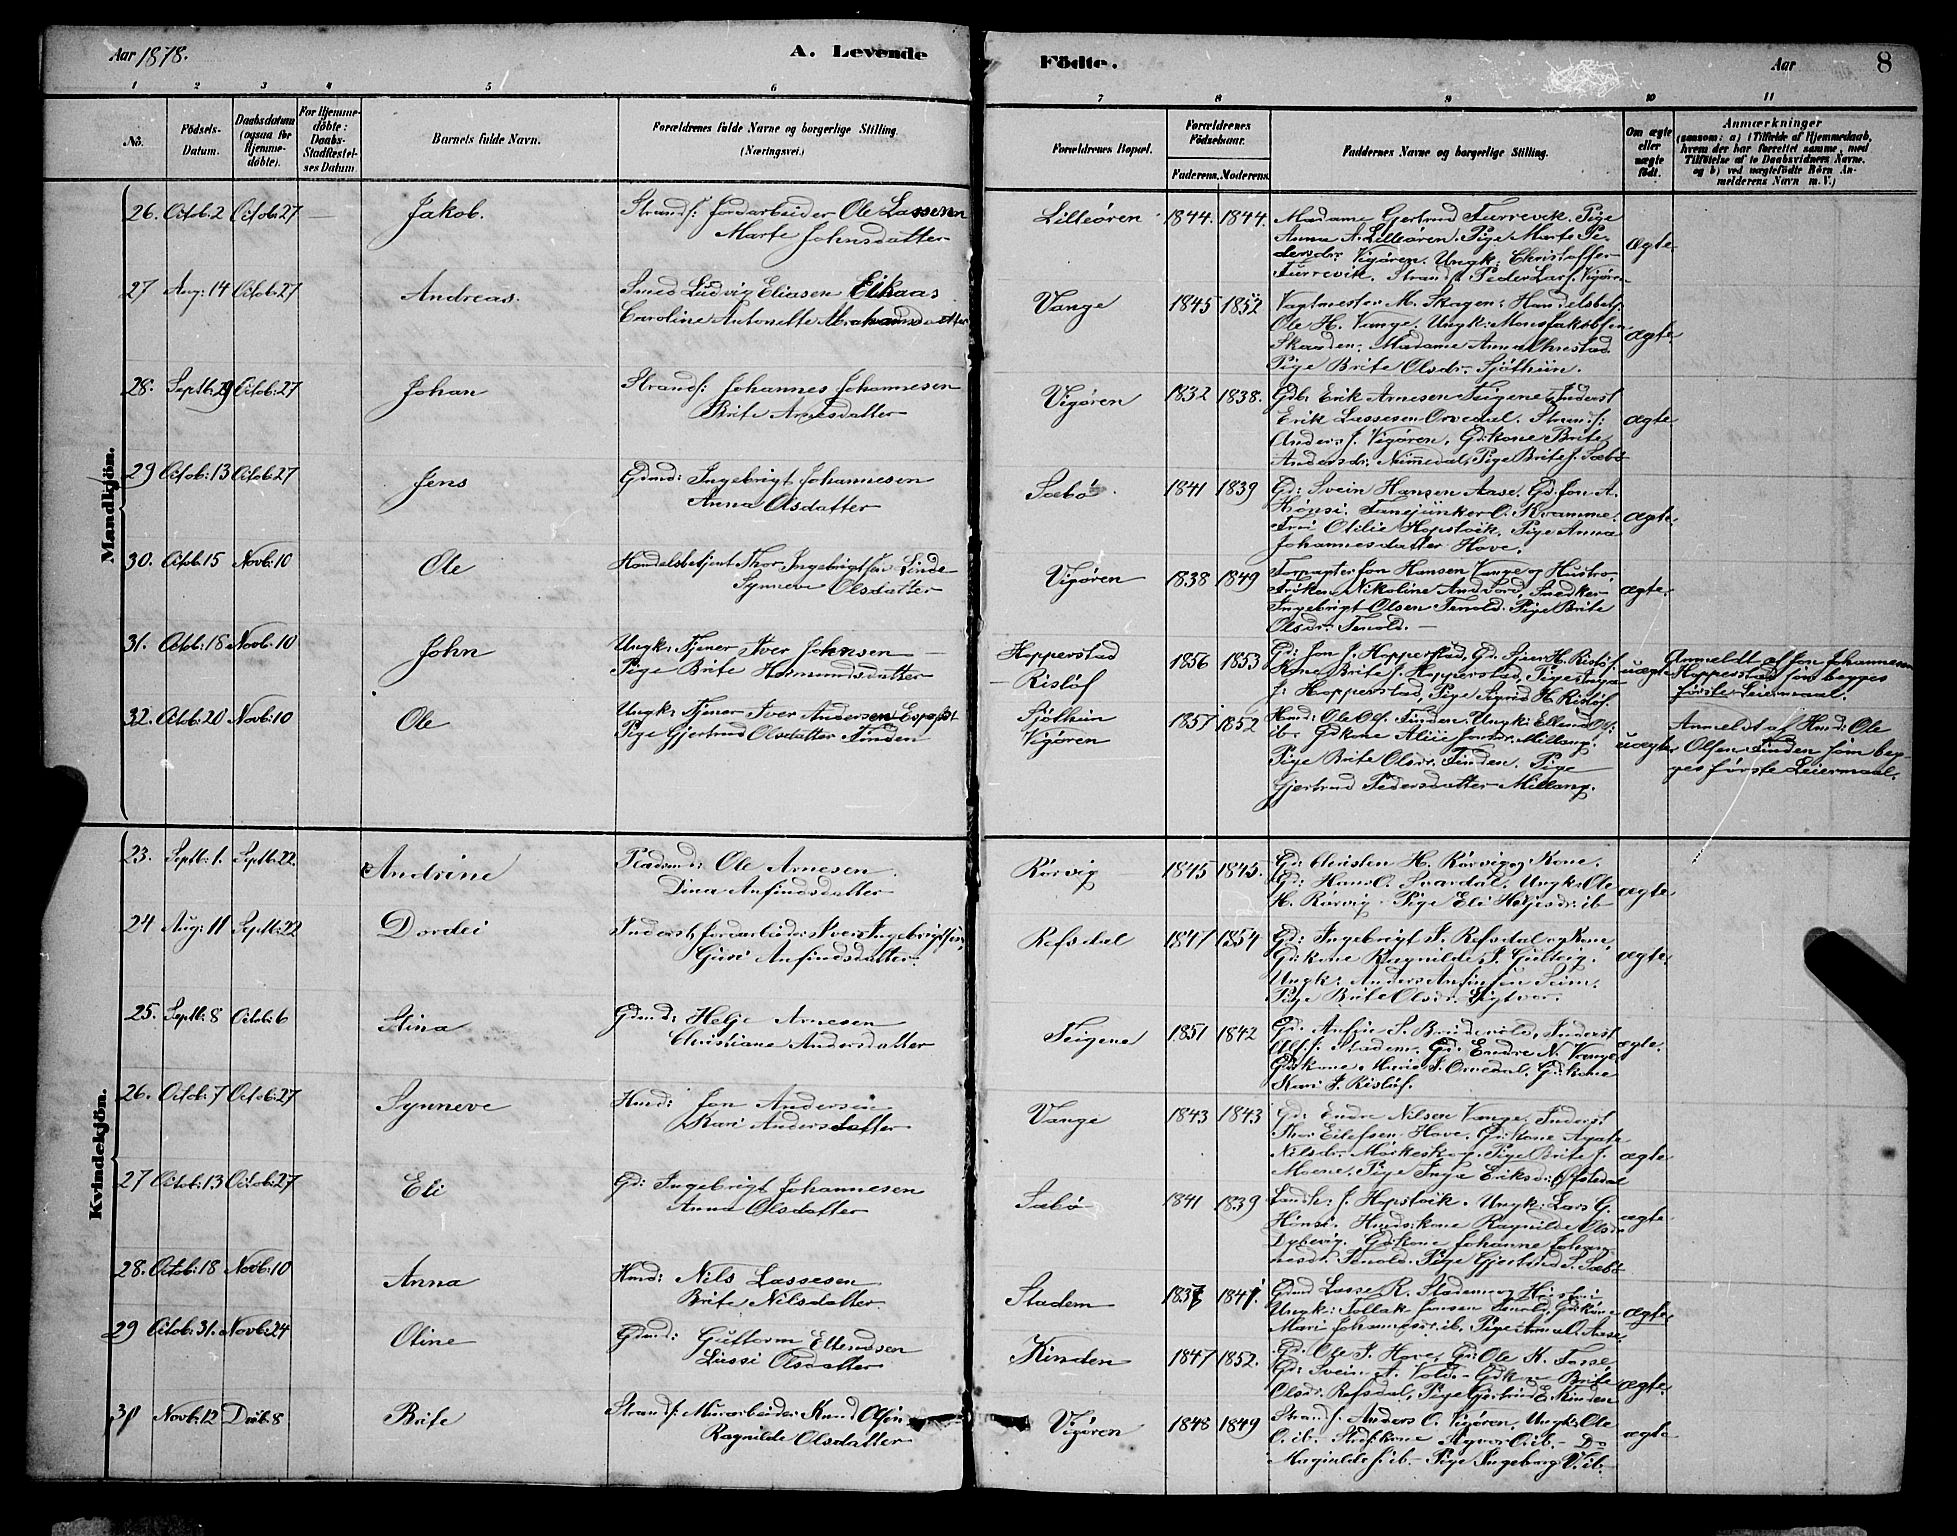 Aar 1878.
A. Levende
Födte.
Aar
8
1 2 3 4 5 6 7 8 9 10 11
No.
Födsels-Datum.
Daabsdatum (ogsaa for Hjemme-döbte).
For Hjemme-döbte: Daabs-Stadfæstel-ses Datum.
Barnets fulde Navn.
Forældrenes fulde Navne og borgerlige Stilling. (Næringsvei.)
Forældrenes Bopæl.
Forældrenes Födselsaar.
Faderens. Moderens.
Faddernes Navne og borgerlige Stilling.
Om ægte eller uægte födt.
Anmærkninger
(saasom: a) i Tilfælde af Hjemmedaab, hvem der har forrettet samme, med Tilföielse af to Daabsvidners Navne. og b) ved uægtefödte Börn An-melderens Navn m. V.)
Mandkjön.
26. Octob. 2 Octob: 27 Jakob. Strands: Jordarbeider Ole Lassesen
Marte Johnsdatter
Lilleören 1844. 1844.
Madame Gjertrud Turrevik. Pige
Anna A. Lilleören. Pige Marte Pe-
dersdr. Vigören. Ungk: Christoffer
Turrevik. Strands. Peder Lars. Vigören
Ægte
27 Aug: 14 Octob: 27 Andreas. Smed Ludvig Eliasen Eikaas
Caroline Antonette Abrahamsdatter
Vange 1845 1852
Vagtmester M. Skagen: Handelsbetj.
Ole H. Vange. Ungk: Mons Jakobsen
Skaaden. Madame Anna
Pige Brite Olsdr. Sjöthun.
ægte
28. Septb: 29 Octob: 27 Johan Strands: Johannes Johannesen
Brite Arnesdatter
Vigören 1832 1838.
Gdb: Erik Arnesen Teigene Inderst
Erik Lassesen Orvedal. Strands:
Anders J. Vigören. Gd:kone Brite
Andersdr. Nummedal, Pige Brite J. Sæbö
ægte
29 Octob: 13 Octob: 27 Jens Gdmd: Ingebrigt Johannesen
Anna Olsdatter
Sæbö 1841 1839
Gd: Svein Hansen Aase. Gd. Jon A.
Hönsi. Fanejunker O. Kvamme.
Fru Otilie Hopstock. Pige Anna
Johannesdatter Hove.
ægte
30. Octb. 15 Novb: 10 Ole Handelsbetjent Thor Ingebrigtsen Linde
Synneva Olsdatter
Vigören 1838 1849
Forpagter Jon Hansen Vange og Hustro
Fröken Nikoline Andvord, Snedker
Ingebrigt Olsen Tenold. Pige Brite
Olsdr. Tenold.
ægte
31. Octob: 18 Novb: 10 John Ungk: Tjener Iver Johnsen
Pige Brite Hermundsdatter
Hopperstad
Rislöf
1856 1853
Gd: Jon J. Hopperstad, Gd. H. Rislöf.
Kone Brite J. Hopperstad, Pige Inga
J. Hopperstad, Pige Sigrid H. Rislöf.
uægte Anmeldt af Jon Johannesen
Hopperstad som begges
förste Leiermaal.
32. Octob: 20 Novb: 10 Ole Ungk: Tjener Iver Andersen
Pige Gjertrud Olsdatter Finden
Sjöthun
Vigören
1857 1852
Hmd: Ole Ols. Finden. Ungk: Ellend Ols:
ib. Gdkone Alice Millang.
Pige Brite Olsdr. Finden. Pige
Gjertrud Pedersdatter Millang.
uægte Anmeldt af Hmd: Ole
Olsen Finden som beg-
ges förste Leiermaal.
Kvindekjön.
23. Septb: 1. Septb: 22 Andrine Pladsmd: Ole Arnesen
Dina Anfindsdatter
Rörvig 1845 1845.
Gd: Christen H. Rörvig og Kone.
Gd: Hans O. Svardal. Ungk: Ole
H. Rörvig. Pige Eli Heljesdr. ib
ægte
24 Aug: 11 Septb: 22 Dordei Inderst Jordarbeider Iver Ingebrigtsen
Guri Anfindsdatter.
Refsdal 1847 1854
Gd: Ingebrigt I. Refsdal og Kone
Gd:kone Ragnilde J. Gulteig.
Ungk: Anders Anfinsen Seim.
Pige Brite Olsdr. Sigtvor.
ægte.
25. Septb: 8 Octob: 6 Stina Gdmd: Helje Arnesen
Christiane Andersdatter
Teigene 1851 1842
Gd: Anfin S. Inderst
Stadem. Gd: Endre N. Vange,
Gdkone Marie J. Orvedal, Gd:kone
Kari J. Rislöf.
ægte.
26. Octob. 7 Octob: 27 Synneve Hmd: Jon Andersen
Kari Andersdatter
Vange 1843 1843
Gd: Endre Nilsen Vange. Inderst
Thor Eilefsen Hove. Gd:kone Agate
Nilsdr. Mörkeskog. Pige Brite J.
Moene. Pige Inga Eriksdr: Öfstedal
ægte
27 Octob: 13 Octob: 27 Eli Gd: Ingebrigt Johannesen
Anna Olsdatter
Sæbö 1841 1839
Landh. J. Hopstock. Ungk: Lars G.
Hönsi. Hmds:kone Ragnilde Olsdr
Dybevig. Gd:kone Johanne Johan-
nesdr. Tenold. Pige Gjertrud S. Sæbö
ægte
28. Octob: 18 Novb: 10 Anna Hmd: Nils Lassesen
Brite Nilsdatter.
Stadem 1841.
Gdmd Lasse R. Stadem og Hustru
Ungk: Sollak Jonsen Tenold, Gd:kone
Mari Johannesdr. ib, Pige Anna O. Aase.
ægte
29 Octob: 31. Novb: 24 Oline Gdmd: Guttorm Ellendsen
Lussi Olsdatter
Kinden 1847 1852.
Gd: Ole J. Hove, Gd: Ole K. Tosse
Gd: Svein A. Vold. Gdkone Brite
Olsdr. Refsdal, Pige Gjertrud E. Kinden
ægte
Novb: 12 Decb. 8 Brite Strands. Murarbeider Knud Olsen
Ragnilde Olsdatter
Vigören 1848 1849
Strands. Anders O. Vigören, Ungk: Ole
O. ib. Strdskone O. ib. Do
Magnilde J. ib. Pige Ingeborg V. ib.
ægte